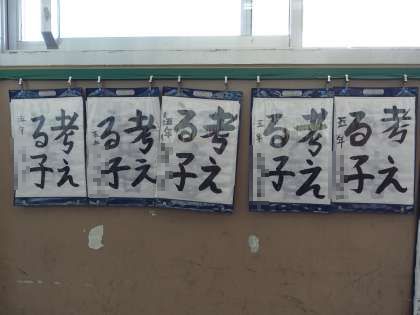 考え
る子
五年
考え
る子
考え
る子
五年
考え
る子
三年
考え
る子
五年